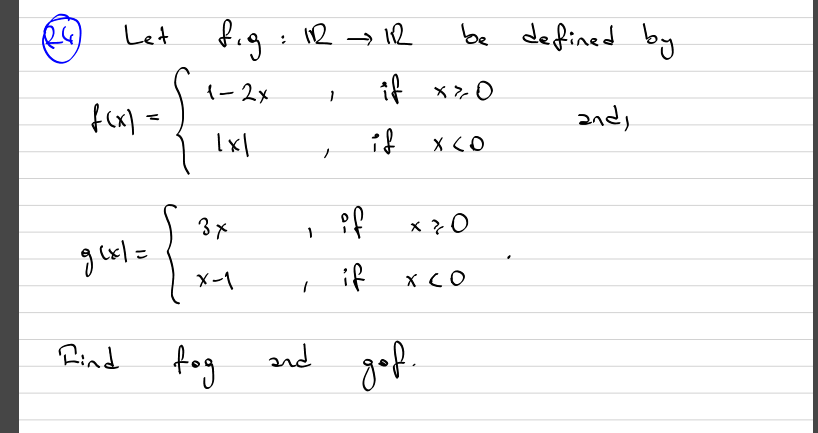 24 Let f,g : ℝ → ℝ be defined by
f(x) = { 1-2x , if x ≥ 0
|x| , if x < 0 and,
g(x) = { 3x , if x ≥ 0
x-1 , if x < 0 .
Find fog and gof.